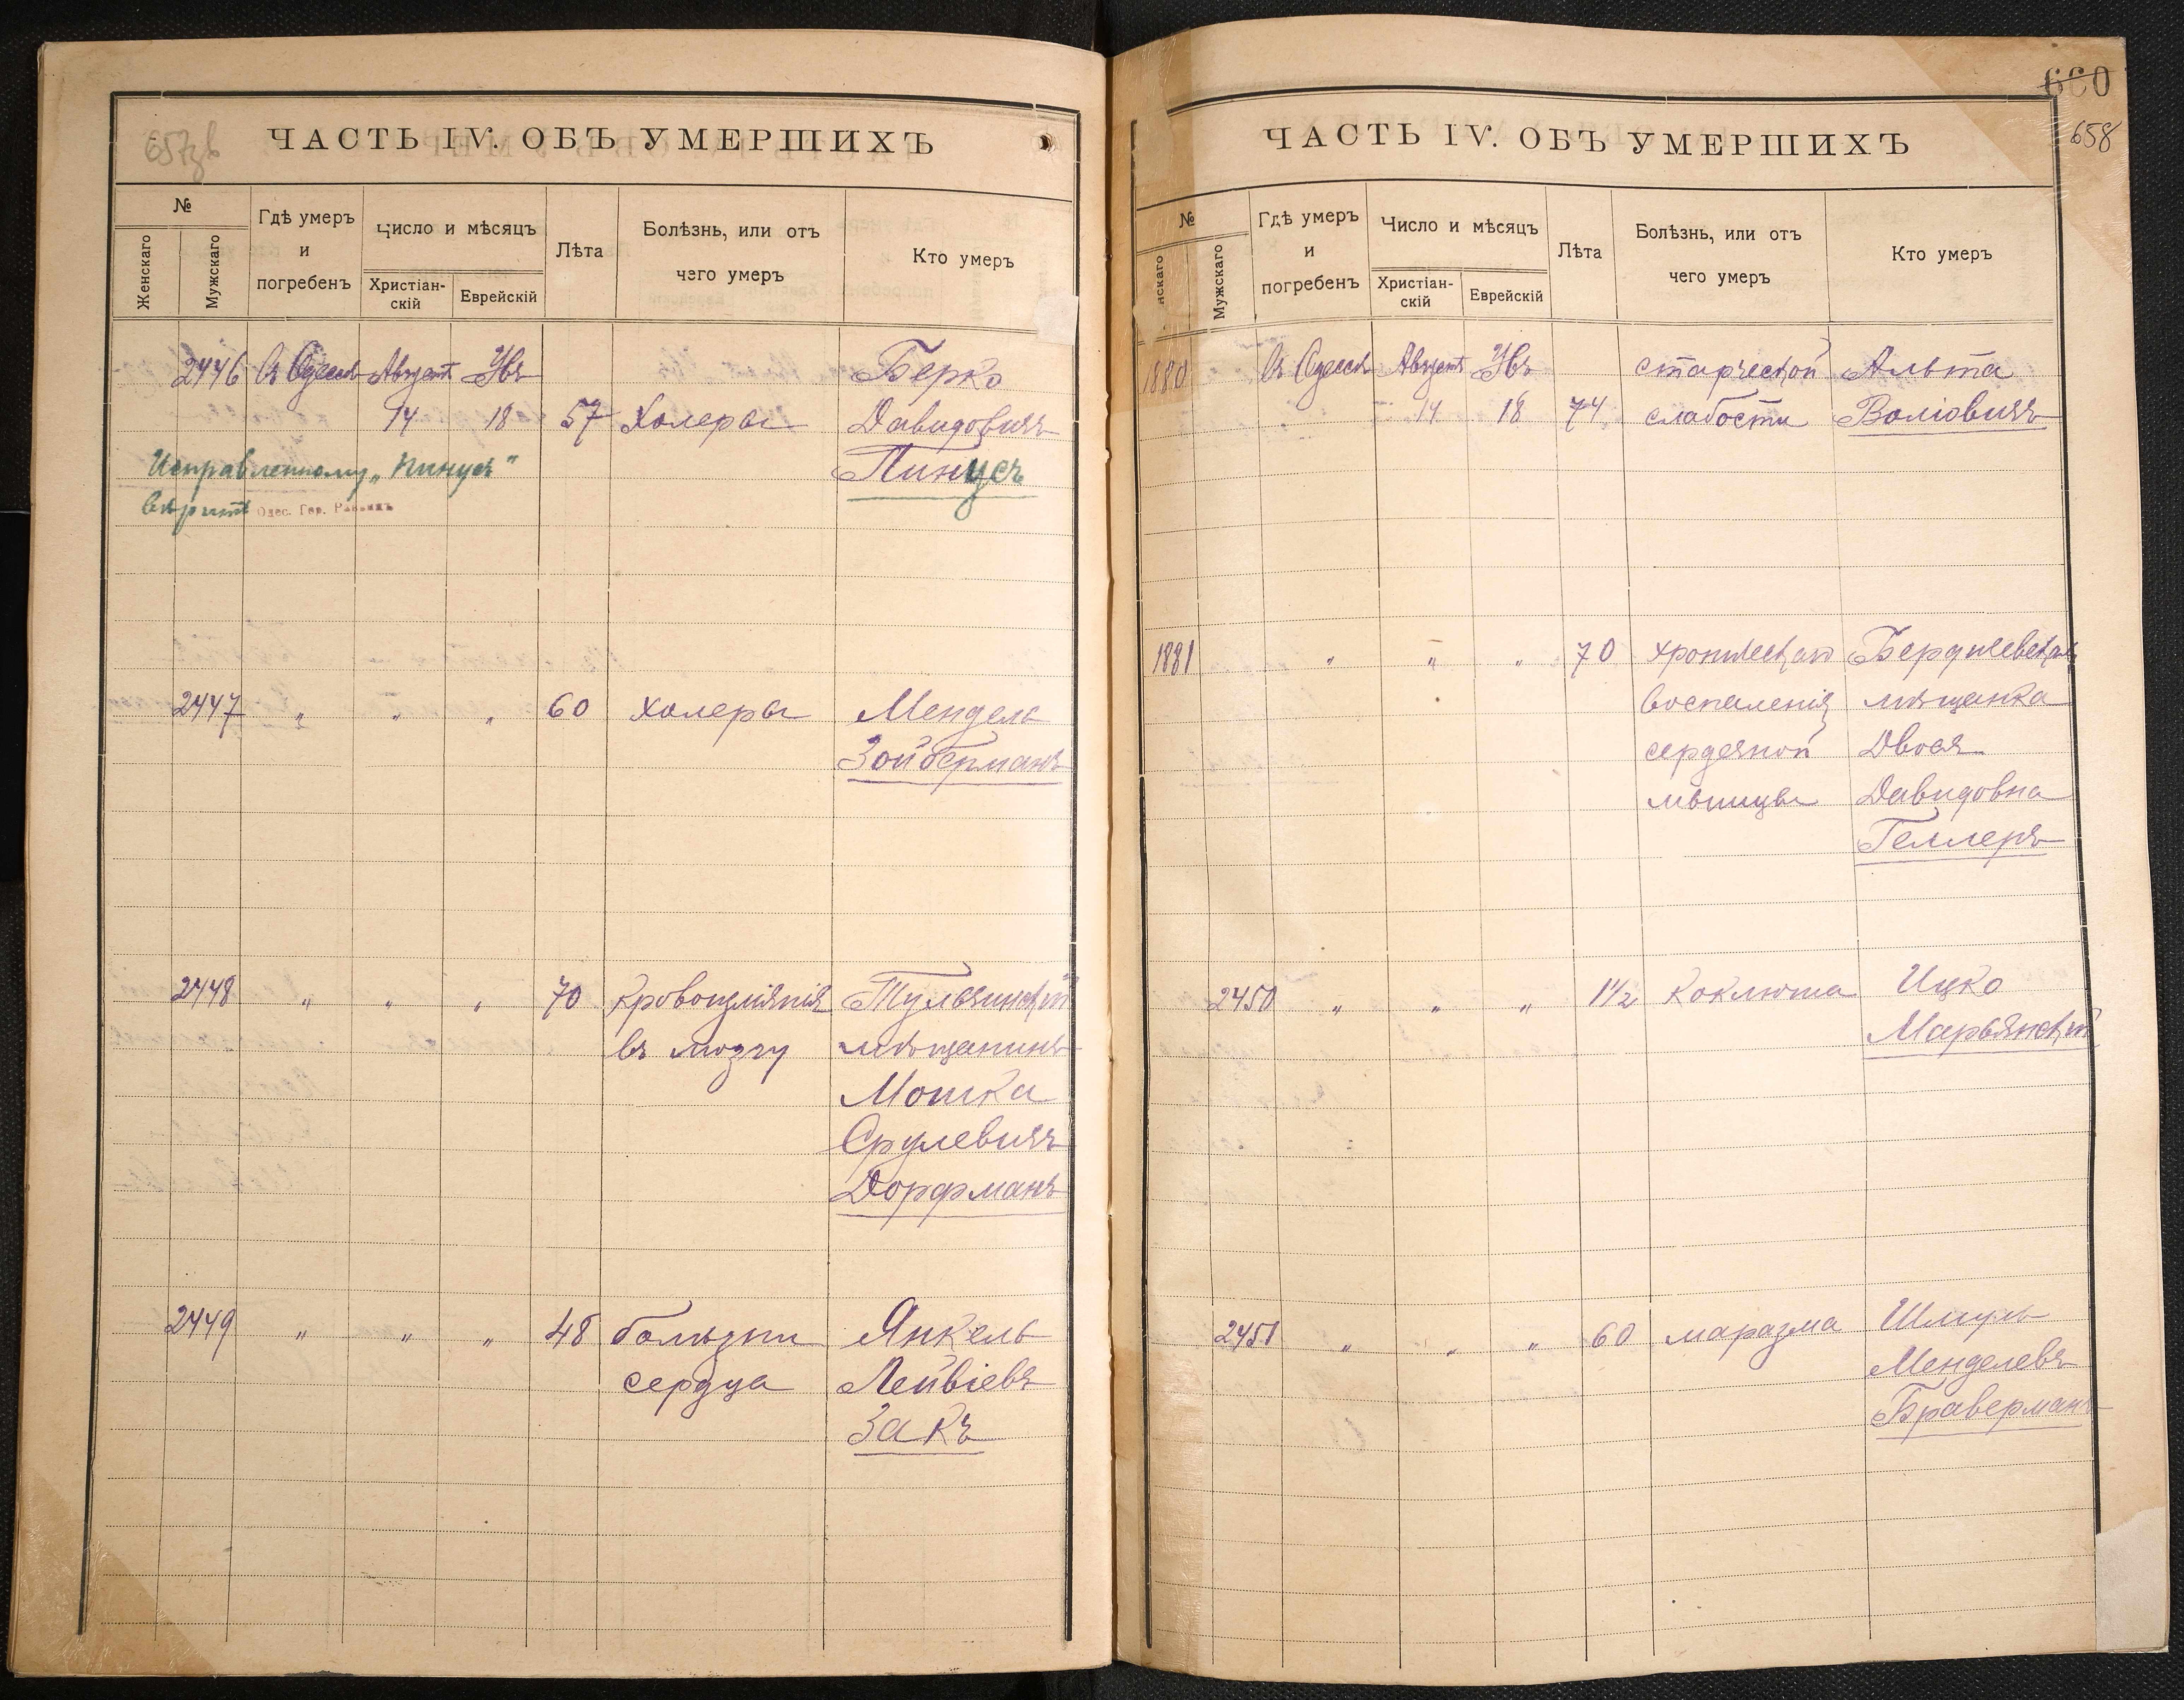 657зв
ЧАСТЬ IV. ОБЪ УМЕРШИХЪ
№
Женскаго
Мужскаго
Гдѣ умеръ
и
погребенъ
Число и мѣсяцъ
Христіан-
скій
Еврейскій
Лѣта
Болѣзнь, или отъ
чего умеръ
Кто умеръ
2446 Въ Одессѣ Августъ Убъ Берко
14 18 57 Холеры Давидовичъ
Исправленному „Пинусъ" Пинусъ
вѣрить Одес. Гор. Раввинъ
2447 " " " 60 холеры Мендель
Зойберманъ
2448 " " " 70 кровоизліянія Тульчинскій
въ мозгу мѣщанинъ
Мошка
Срулевичъ
Дорфманъ
2449 " " " 48 болѣзни Янкель
сердца Лейвіевъ
Закъ
660
658
ЧАСТЬ IV. ОБЪ УМЕРШИХЪ
№
нскаго
Мужскаго
Гдѣ умеръ
и
погребенъ
Число и мѣсяцъ
Христіан-
скій
Еврейскій
Лѣта
Болѣзнь, или отъ
чего умеръ
Кто умеръ
1880 Въ Одессѣ Августъ Убъ старческой Альта
14 18 74 слабости Воліовичъ
1881 " " " 70 хроническаго Бердичевская
воспаленія мѣщанка
сердечной Двося
мышцы Давидовна
Геллеръ
2450 " " " 1 1/2 коклюша Ицко
Марьянскій
2451 " " " 60 маразма Шмуль
Менделевъ
Браверманъ